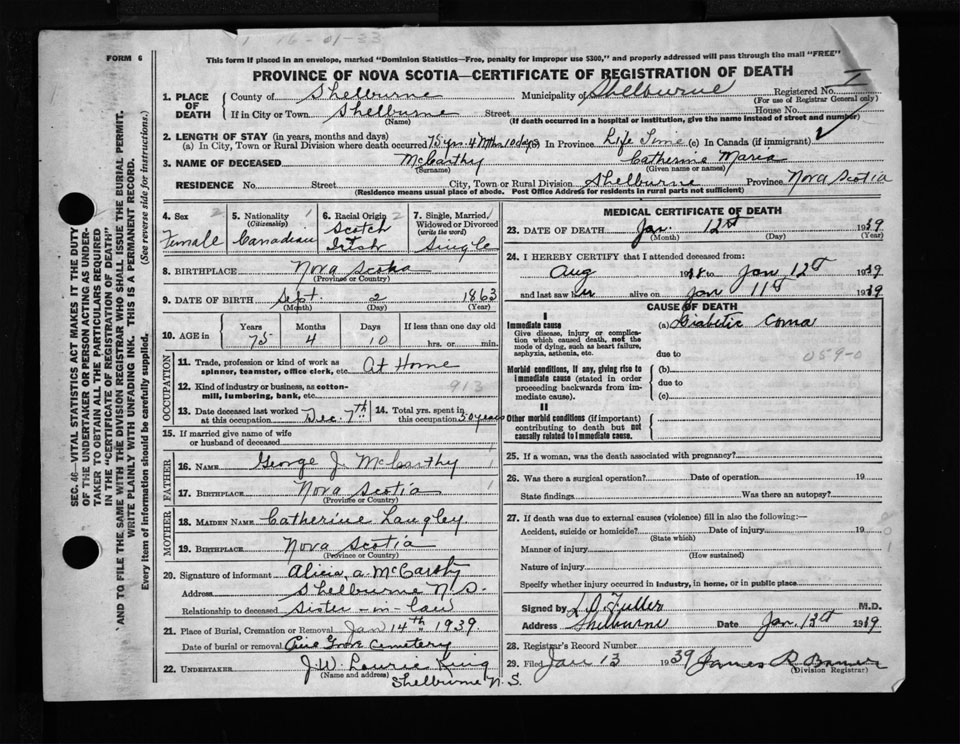 16-01-33
FORM 6
This form if placed in an envelope, marked "Dominion Statistics—Free, penalty for improper use $300," and properly addressed will pass through the mail "FREE"
PROVINCE OF NOVA SCOTIA—CERTIFICATE OF REGISTRATION OF DEATH
1. PLACE OF DEATH
County of Shelburne Municipality of Shelburne Registered No.
(For use of Registrar General only)
If in City or Town Shelburne Street House No.
(Name) (If death occurred in a hospital or institution, give the name instead of street and number)
2. LENGTH OF STAY (in years, months and days)
(a) In City, Town or Rural Division where death occurred 75 yrs. 4 Mths 10 days (b) In Province Life Time (c) In Canada (if immigrant)
3. NAME OF DECEASED McCarthy Catherine Maria
(Surname) (Given name or names)
RESIDENCE No. Street City, Town or Rural Division Shelburne Province Nova Scotia
(Residence means usual place of abode. Post Office Address for residents in rural parts not sufficient)
4. Sex 2
Female
5. Nationality 1
(Citizenship)
Canadian
6. Racial Origin 2
Scotch
7. Single, Married, Widowed or Divorced
(write the word)
Single
8. BIRTHPLACE Nova Scotia
(Province or Country)
9. DATE OF BIRTH Sept. 2 1863
(Month) (Day) (Year)
10. AGE in Years Months Days If less than one day old
75 4 10 hrs. or min.
OCCUPATION
11. Trade, profession or kind of work as spinner, teamster, office clerk, etc. At Home
12. Kind of industry or business, as cotton-mill, lumbering, bank, etc. 913
13. Date deceased last worked at this occupation Dec. 7th
14. Total yrs. spent in this occupation 50 years
15. If married give name of wife or husband of deceased
FATHER
16. NAME George J. McCarthy
17. BIRTHPLACE Nova Scotia
(Province or Country)
MOTHER
18. MAIDEN NAME Catherine Langley
19. BIRTHPLACE Nova Scotia
(Province or Country)
20. Signature of informant Alicia A. McCarthy
Address Shelburne N.S.
Relationship to deceased Sister-in-law
21. Place of Burial, Cremation or Removal Jan 14th 1939
Date of burial or removal Pine Grove Cemetery
22. UNDERTAKER J.W. Lourie King
(Name and address)
Shelburne N.S.
MEDICAL CERTIFICATE OF DEATH
23. DATE OF DEATH Jan. 12th 1939
(Month) (Day) (Year)
24. I HEREBY CERTIFY that I attended deceased from:
Aug 1938 to Jan 12th 1939
and last saw her alive on Jan 11th 1939
CAUSE OF DEATH
I
Immediate cause (a) Diabetic Coma
Give disease, injury or complication which caused death, not the mode of dying, such as heart failure, asphyxia, asthenia, etc.
due to 059-0
Morbid conditions, if any, giving rise to immediate cause (stated in order proceeding backwards from immediate cause).
(b)
due to
(c)
II
Other morbid conditions (if important) contributing to death but not causally related to immediate cause.
25. If a woman, was the death associated with pregnancy?
26. Was there a surgical operation? Date of operation 19
State findings Was there an autopsy?
27. If death was due to external causes (violence) fill in also the following:—
Accident, suicide or homicide? Date of injury 19
(State which)
Manner of injury
(How sustained)
Nature of injury
Specify whether injury occurred in industry, in home, or in public place
Signed by L.O. Fuller M.D.
Address Shelburne Date Jan. 13th 1939
28. Registrar's Record Number
29. Filed Jan 13 1939 James R.
(Division Registrar)
SEC. 46—VITAL STATISTICS ACT MAKES IT THE DUTY
OF THE UNDERTAKER OR PERSON ACTING AS UNDER-
TAKER TO OBTAIN ALL THE PARTICULARS REQUIRED
IN THE "CERTIFICATE OF REGISTRATION OF DEATH"
AND TO FILE THE SAME WITH THE DIVISION REGISTRAR WHO SHALL ISSUE THE BURIAL PERMIT.
WRITE PLAINLY WITH UNFADING INK. THIS IS A PERMANENT RECORD.
Every item of information should be carefully supplied. (See reverse side for instructions.)